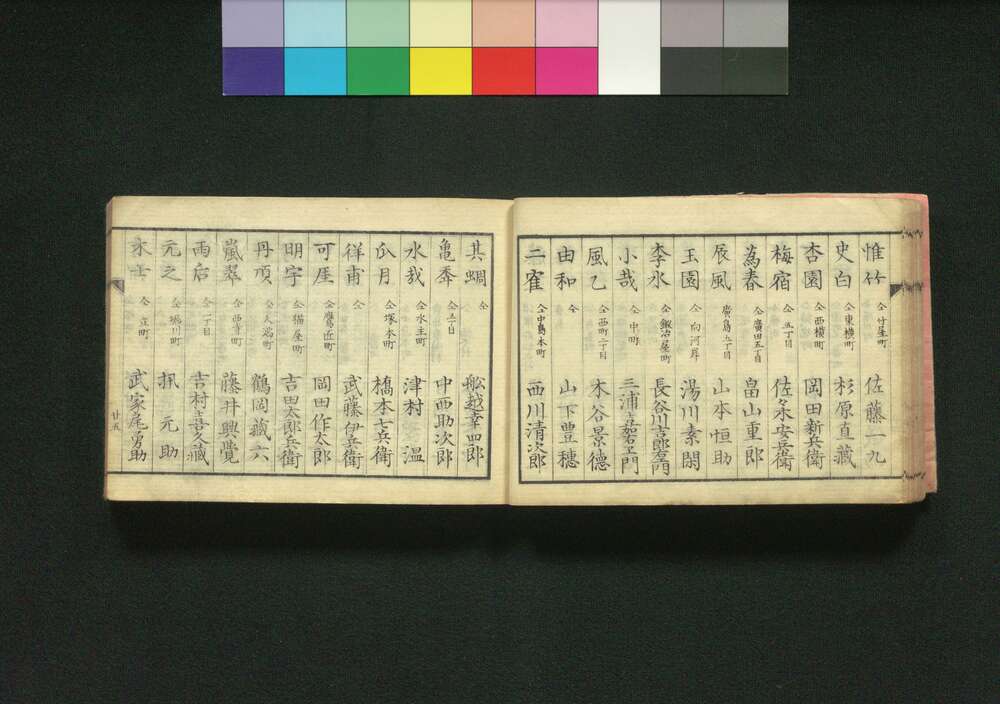 惟竹 仝竹屋町 佐藤一九
史白 仝東横町 杉原直藏
杏園 仝西横町 岡田新兵衛
梅宿 仝五丁目 佐々木安兵衛
為春 仝廣田五丁目 畠山重郎
辰風 廣島五丁目 山本恒助
玉園 仝向河岸 湯川素閑
李水 仝鍛冶屋町 長谷川吉郎右衛門
小哉 仝中町 三浦
風乙 仝西町二丁目 木谷景德
由和 仝 山下豊穗
二隺 仝中島本町 西川清次郎
其蜩 仝 舩越幸四郎
亀黍 仝五丁目 中西助次郎
水哉 仝水主町 津村温
瓜月 仝塚本町 橋本七兵衛
祥甫 仝 武藤伊兵衛
可厓 仝鷹匠町 岡田作太郎
明宇 仝猫屋町 吉田太郎兵衛
丹頂 仝大 町 鶴岡藏六
嵐翠 仝西 町 藤井興覺
雨后 仝二丁目 吉村喜久藏
元之 仝堀川町 元助
仝立町 武家尾勇助
廿五